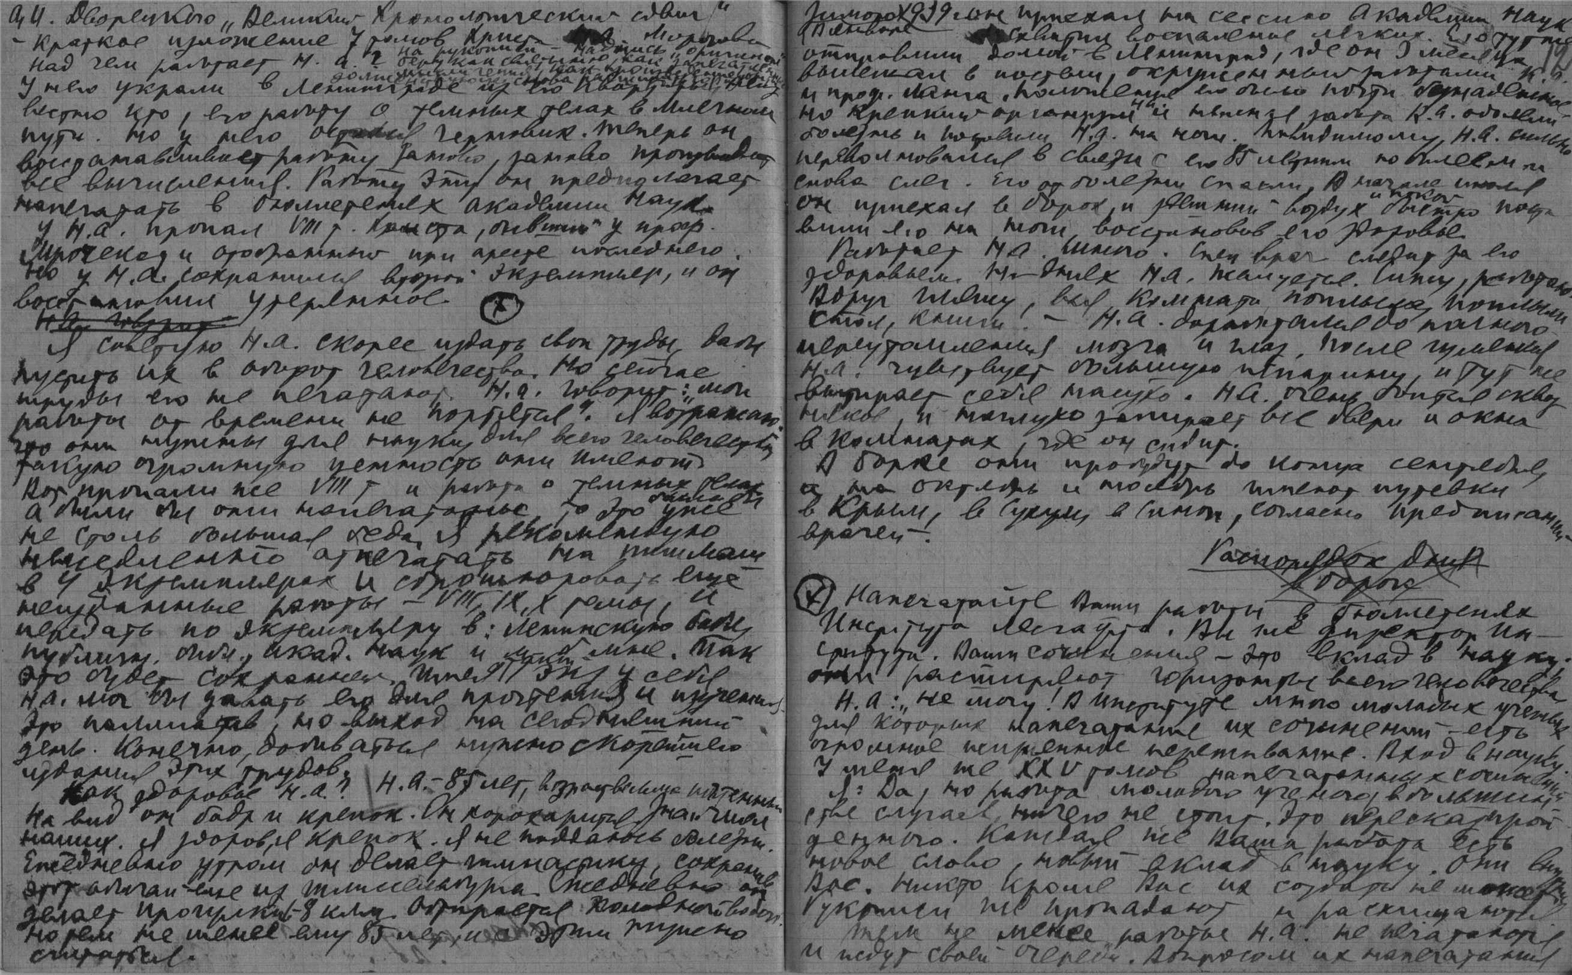 Дворецкого „Великий Хронологический сдвиг"
- Краткое изложение 7 томов Христа Морозова
Над чем работает Н.А.?
У него украли в Ленинграде из его квартиры,
вестно кто, его работу о темных телах в Млечном
пути. Но у него остался черновик. Теперь он
восстанавливает работу заново, заново производит
все вычисления. Работу эту он предполагает
напечатать в бюллетенях Академии Наук.
У Н.А. пропал VIII т. Христа, бывший у проф.
и отобранный при аресте последнего.
Но у Н.А. сохранился второй экземпляр, и он
восстановил утерянное.
Н.А. говорит
Я советую Н.А. скорее издать свои труды, дабы
пустить их в оборот человечества. Но сейчас
труды его не печатают. Н.А. говорит: „мои
работы от времени не портятся". Я возражаю:
что они нужны для науки, для всего человечества,
такую огромную ценность они имеют.
Вот пропали же VIII т и работа о темных телах
А были бы они напечатаны, то это уже
не столь большая беда. Я рекомендую
немедленно отпечатать на машинке
в 4 экземплярах и сброшюровать ещё
неизданные работы - VIII, IX, X томы, и
передать по экземпляру в: Ленинскую библ,
публичн. библ., Акад. Наук и мне. Так
это будет сохраннее. Имея экз у себя
Н.А. мог бы давать его для прочтения и изучения.
Это паллиатив, но выход на сегодняшний
день. Конечно, добиваться нужно скорейшего
издания этих трудов.
Как здоровье Н.А.? Н.А. - 85 лет,
На вид он бодр и крепок. Он
наших. Я здоров, я крепок. Я не поддаюсь болезни.
Ежедневно утром он делает гимнастику, сохранив
этот обычай еще из Шлиссельбурга. Ежедневно он
делает прогулки - 8 клм. Обтирается холодной водой.
Но тем не менее ему 85 лет, и с этим нужно
считаться.
Зимою 1939 он приехал на сессию Академии Наук
схватил воспаление легких. Его тут же
отправили домой в Ленинград, где он 3 месяца
вылежал в постели, окруженный заботами К.А.
и проф. Ланга. Положение его было почти безнадежное
Но крепкий организм и нежная забота К.А. одолели
болезнь и поставили Н.А. на ноги. Повидимому, Н.А. сильно
переволновался в связи с его 85 летним юбилеем и
снова слег. Его от болезни спасли. В начале июля
он приехал в Борок, и здешний воздух и покой быстро поста
вили его на ноги, восстановив его здоровье.
Работает Н.А. много. Спец врач следит за его
здоровьем. На днях Н.А. жалуется. Сижу, работаю.
Вдруг гляжу, вся комната поплыла, поплыли
стол, книги. - Н.А. доработался до полного
переутомления мозга и глаз. После гуляния
Н.А. чувствует большую испарину, и тут же
вытирает себя насухо. Н.А. очень боится сквоз
няков, и наглухо запирает все двери и окна
в комнатах, где он сидит.
В Борке они пробудут до конца сентября,
а на октябрь и ноябрь имеют путевки
в Крым, в Сухум, в Симеиз, согласно предписанию
врачей.
Распорядок дня
в Борке
Напечатайте Ваши работы в бюллетенях
Института Лесгафта. Вы же директор Ин-
ститута. Ваши сочинения - это вклад в науку.
они расширяют горизонты всего человечества
Н.А: „Не могу! В Институте много молодых ученых
для которых напечатание их сочинений - есть
огромное внутреннее переживание. Вход в науку.
У меня же XXV томов напечатанных сочинений
Я: Да, но работа молодого ученого, в большин
стве случаев, ничего не стоит. Это пересказ прой
денного. Каждая же Ваша работа есть
новое слово, новый вклад в науку. Они
Вас. Никто кроме Вас их создать не может
Рукописи же пропадают и расхищаются
Тем не менее работы Н.А. не печатаются
и ждут своей очереди. Вопросом их напечатания